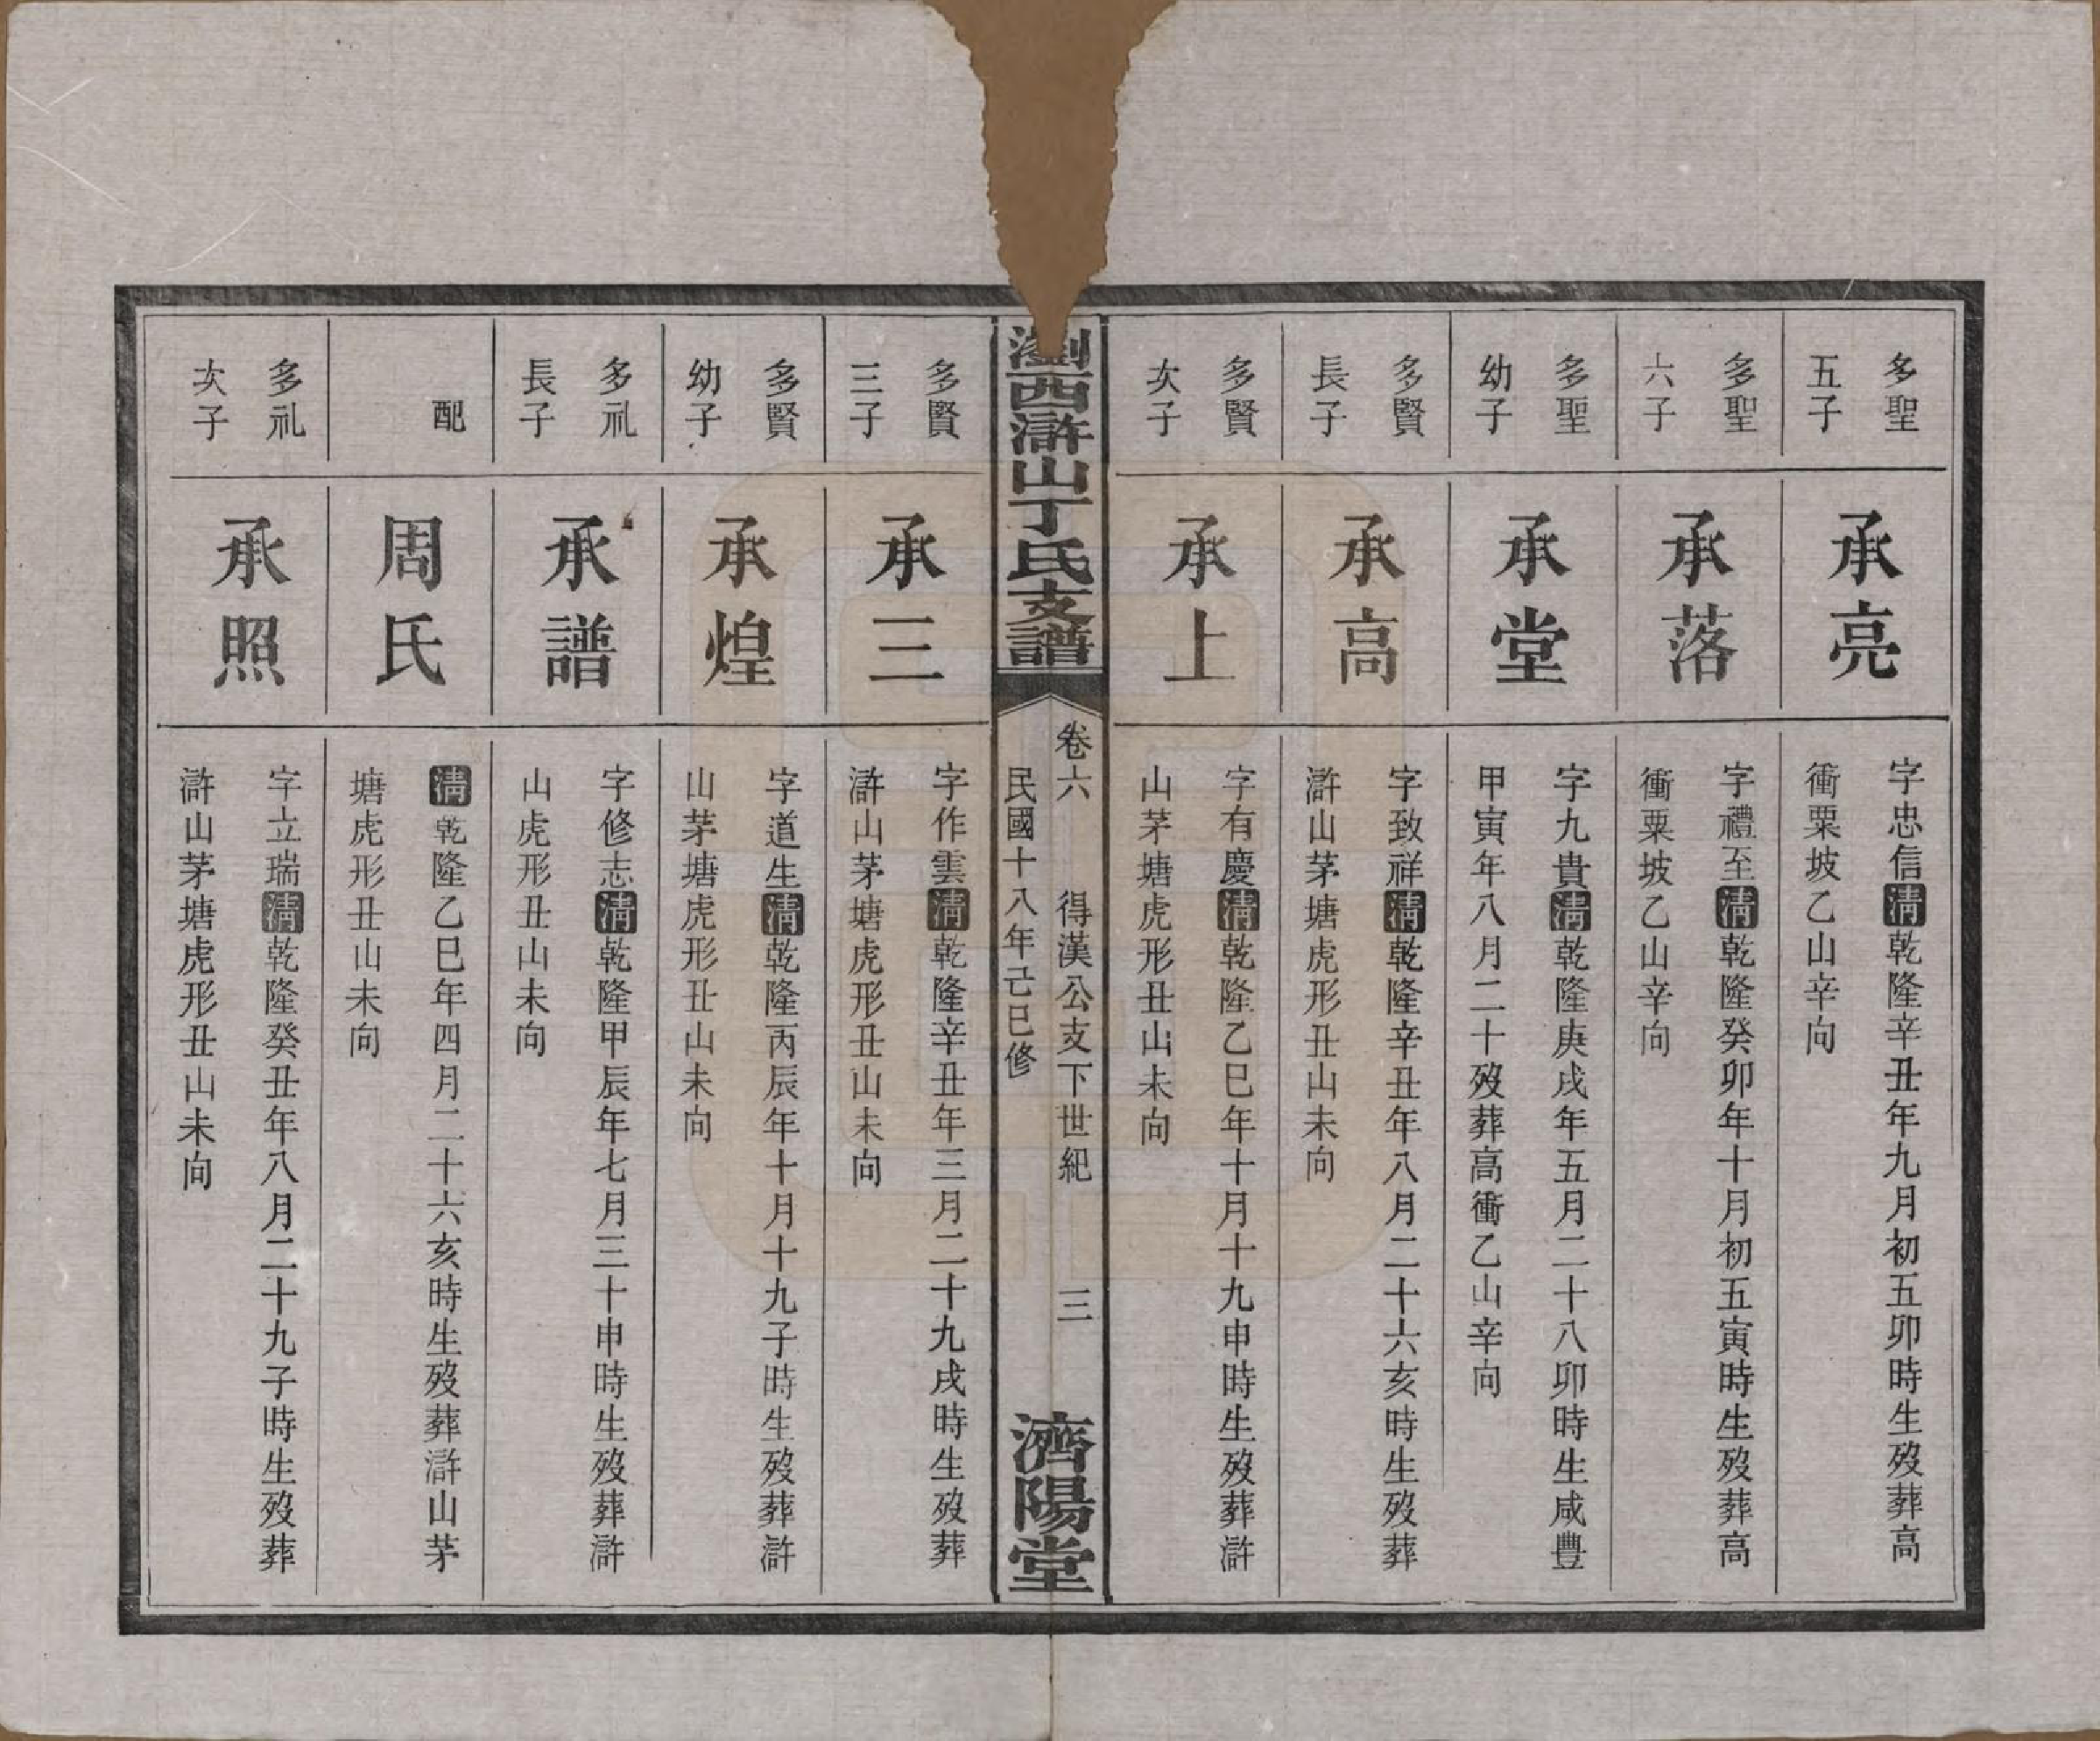 多聖
五子
承亮
字忠信清乾隆辛丑年九月初五卯時生歿葬高
衝粟坡乙山辛向
多聖
六子
承落
字禮至清乾隆癸卯年十月初五寅時生歿葬高
衝粟坡乙山辛向
多聖
幼子
承堂
字九貴清乾隆庚戌年五月二十八卯時生咸豐
甲寅年八月二十歿葬高衝乙山辛向
多賢
長子
承高
字致祥清乾隆辛丑年八月二十六亥時生歿葬
滸山茅塘虎形丑山未向
多賢
次子
承上
字有慶清乾隆乙巳年十月十九申時生歿葬滸
山茅塘虎形丑山未向
瀏西滸山丁氏支譜
卷六 得漢公支下世紀 三
民國十八年己巳修
濟陽堂
多賢
三子
承三
字作雲清乾隆辛丑年三月二十九戌時生歿葬
滸山茅塘虎形丑山未向
多賢
幼子
承煌
字道生清乾隆丙辰年十月十九子時生歿葬滸
山茅塘虎形丑山未向
多礼
長子
承譜
字修志清乾隆甲辰年七月三十申時生歿葬滸
山虎形丑山未向
配
周氏
清乾隆乙巳年四月二十六亥時生歿葬滸山茅
塘虎形丑山未向
多礼
次子
承照
字立瑞清乾隆癸丑年八月二十九子時生歿葬
滸山茅塘虎形丑山未向